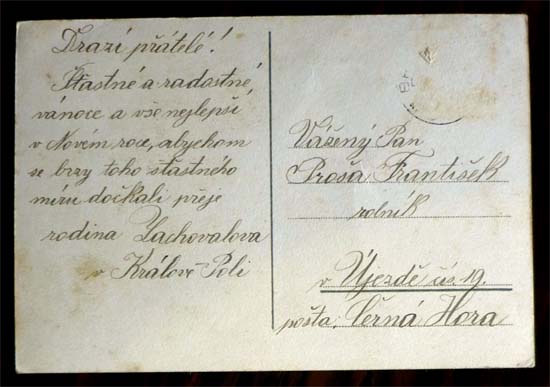 Drazí přátelé!
Šťastné a radostné
vánoce a vše nejlepší
v Novém roce, abychom
se brzy toho šťastného
míru dočkali přeje
rodina Lachovalova
v Králově Poli
Vážený Pan
Proša František
rolník
v Újezdě čís 19.
pošta. Černá Hora